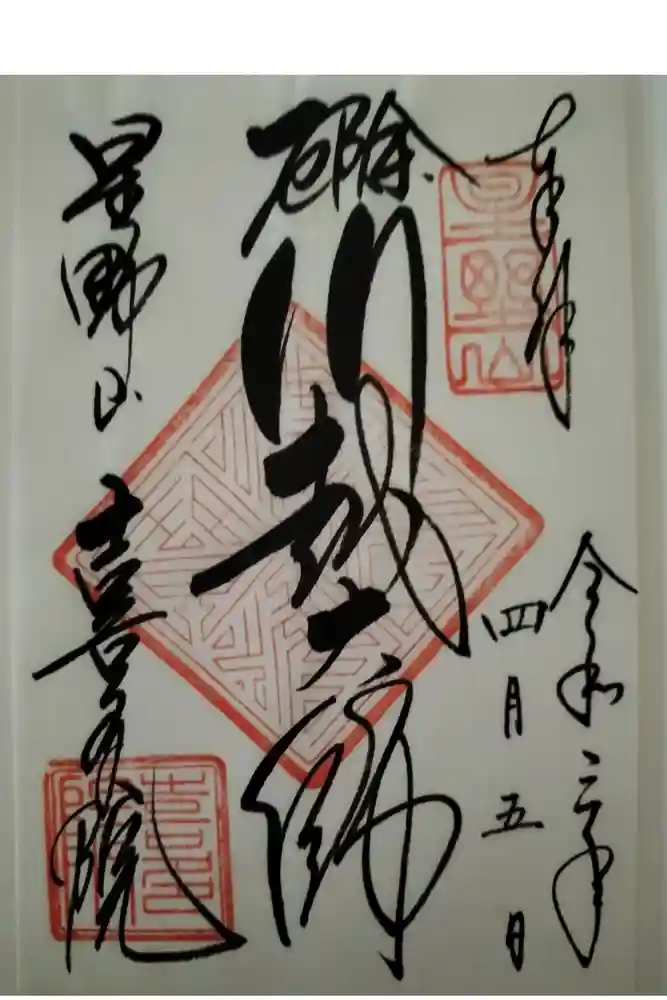 奉拝
令和三年
四月五日
厄除
川越大師
星野山
喜多院
星野山